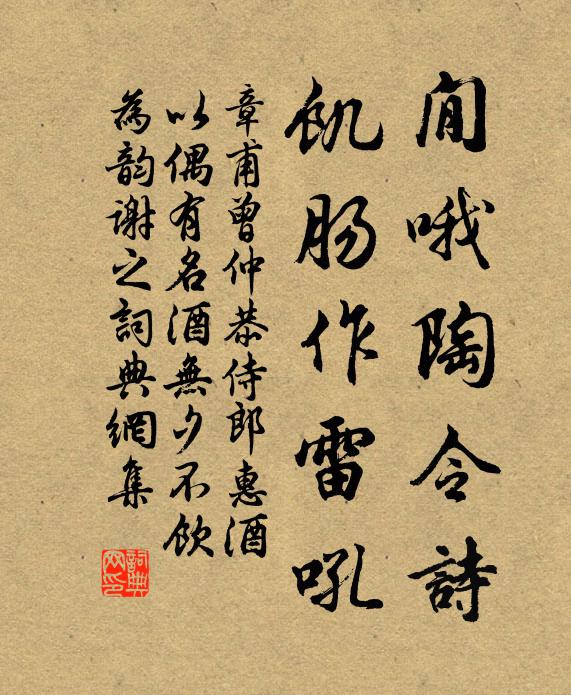 閒哦陶令詩
飢腸作雷吼
章甫曾仲恭侍郎惠酒
以偶有名酒無夕不飲
為韵謝之詞典網集
詞典网印